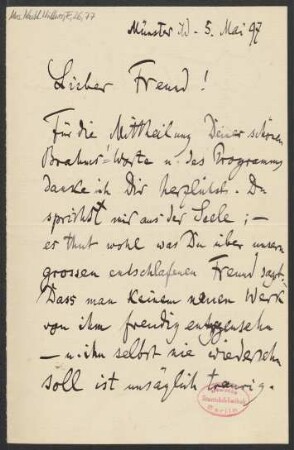 Münster i/W - 5. Mai 97
Lieber Freund!
Für die Mittheilung Deiner schönen
Brahms-Worte u. des Programms
danke ich Dir herzlichst. Du
sprichst mir aus der Seele; –
es thut wohl was Du über unsern
grossen entschlafenen Freund sagst.
Dass man keinem neuen Werk
von ihm freudig entgegensehn
– u. ihn selbst nie wiedersehn
soll ist unsäglich traurig.
Staatsbibliothek
Berlin